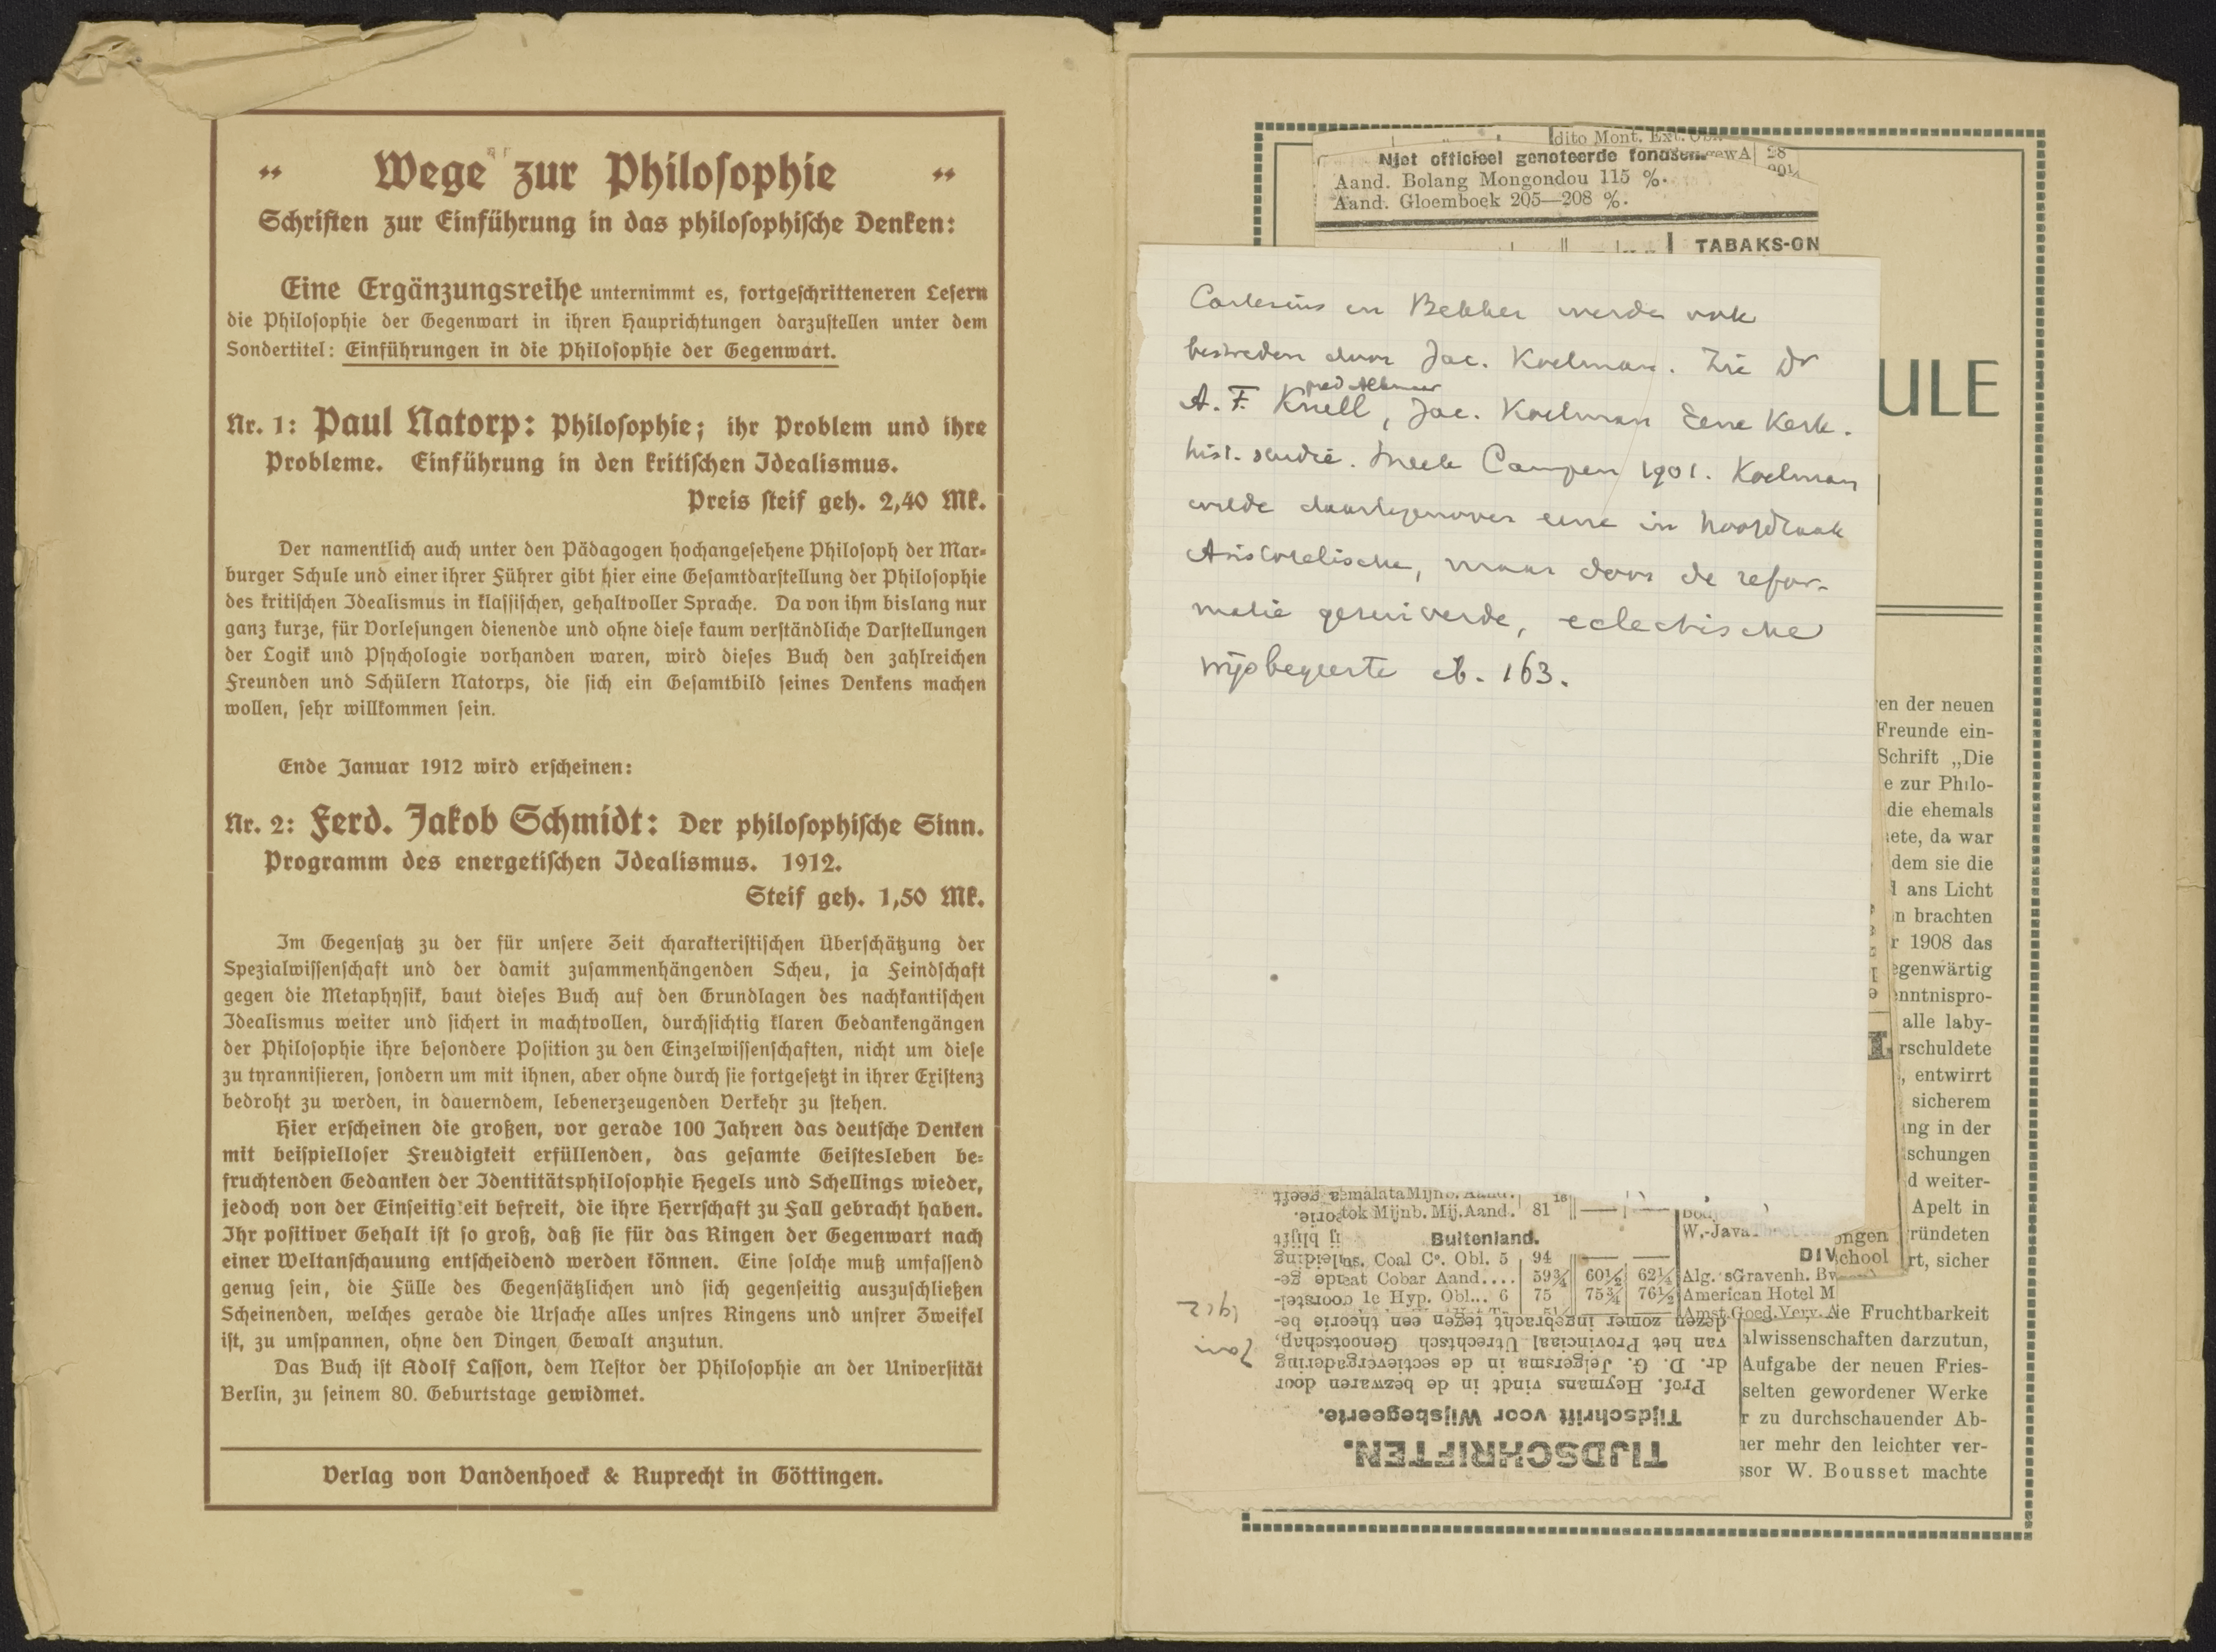 Wege zur Philosophie
Schriften zur Einführung in das philosophische Denken:
Eine Ergänzungsreihe unternimmt es, fortgeschritteneren Lesern
die Philosophie der Gegenwart in ihren Hauprichtungen darzustellen unter dem
Sondertitel: Einführungen in die Philosophie der Gegenwart.
Nr. 1: Paul Natorp: Philosophie; ihr Problem und ihre
Probleme. Einführung in den kritischen Idealismus.
Preis steif geh. 2,40 Mk.
Der namentlich auch unter den Pädagogen hochangesehene Philosoph der Mar-
burger Schule und einer ihrer Führer gibt hier eine Gesamtdarstellung der Philosophie
des kritischen Idealismus in klassischer, gehaltvoller Sprache. Da von ihm bislang nur
ganz kurze, für Vorlesungen dienende und ohne diese kaum verständliche Darstellungen
der Logik und Psychologie vorhanden waren, wird dieses Buch den zahlreichen
Freunden und Schülern Natorps, die sich ein Gesamtbild seines Denkens machen
wollen, sehr willkommen sein.
Ende Januar 1912 wird erscheinen:
Nr. 2: Ferd. Jakob Schmidt: Der philosophische Sinn.
Programm des energetischen Idealismus. 1912.
Steif geh. 1,50 Mk.
Im Gegensatz zu der für unsere Zeit charakteristischen Überschätzung der
Spezialwissenschaft und der damit zusammenhängenden Scheu, ja Feindschaft
gegen die Metaphysik, baut dieses Buch auf den Grundlagen des nachkantischen
Idealismus weiter und sichert in machtvollen, durchsichtig klaren Gedankengängen
der Philosophie ihre besondere Position zu den Einzelwissenschaften, nicht um diese
zu tyrannisieren, sondern um mit ihnen, aber ohne durch sie fortgesetzt in ihrer Existenz
bedroht zu werden, in dauerndem, lebenerzeugenden Verkehr zu stehen.
Hier erscheinen die großen, vor gerade 100 Jahren das deutsche Denken
mit beispielloser Freudigkeit erfüllenden, das gesamte Geistesleben be-
fruchtenden Gedanken der Identitätsphilosophie Hegels und Schellings wieder,
jedoch von der Einseitigkeit befreit, die ihre Herrschaft zu Fall gebracht haben.
Ihr positiver Gehalt ist so groß, daß sie für das Ringen der Gegenwart nach
einer Weltanschauung entscheidend werden können. Eine solche muß umfassend
genug sein, die Fülle des Gegensätzlichen und sich gegenseitig auszuschließen
Scheinenden, welches gerade die Ursache alles unsres Ringens und unsrer Zweifel
ist, zu umspannen, ohne den Dingen Gewalt anzutun.
Das Buch ist Adolf Lasson, dem Nestor der Philosophie an der Universität
Berlin, zu seinem 80. Geburtstage gewidmet.
Verlag von Vandenhoeck & Ruprecht in Göttingen.
dito Mont. Ext.
Niet officieel genoteerde fondsen.
Aand. Bolang Mongondou 115 %.
Aand. Gloemboek 205—208 %.
TABAKS-ON
Cartesius en Bekker werden ook
bestreden door Jac. Koelman. Zie Dr
A. F. Krull, pred Alkmaar, Jac. Koelman Eene Kerk.
hist. studie. Sneek Campen 1901. Koelman
wilde daartegenover eene in hoofdzaak
Aristotelische, maar door de refor-
matie gezuiverde, eclectische
wijsbegeerte ib. 163.
ULE
en der neuen
Freunde ein-
Schrift „Die
e zur Philo-
die ehemals
ete, da war
dem sie die
ans Licht
n brachten
r 1908 das
egenwärtig
nntnispro-
alle laby-
rschuldete
, entwirrt
sicherem
ng in der
schungen
d weiter-
Apelt in
ründeten
rt, sicher
ie Fruchtbarkeit
alwissenschaften darzutun,
Aufgabe der neuen Fries-
selten gewordener Werke
r zu durchschauender Ab-
er mehr den leichter ver-
ssor W. Bousset machte
emalata Mijnb. Aand.
tok Mijnb. Mij. Aand. 81
Buitenland.
ns. Coal Co. Obl. 5 94
eat Cobar Aand.... 59¾ 60½ 62¼
1e Hyp. Obl... 6 75 75¾ 76½
W.-Java
DIV
Alg. 'sGravenh. Bv
American Hotel M
Amst. Goed. Verv. A
ongen
chool
TIJDSCHRIFTEN.
Tijdschrift voor Wijsbegeerte.
Prof. Heymans vindt in de bezwaren door
dr. D. G. Jelgersma in de sectievergadering
van het Provinciaal Utrechtsch Genootschap,
dezen zomer ingebracht tegen een theorie be-
Jan
1912